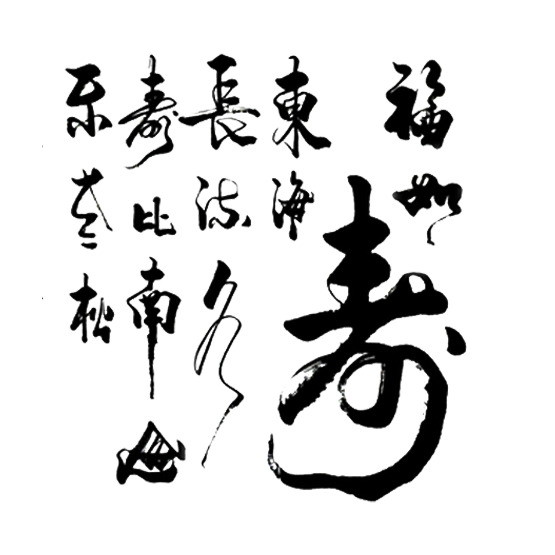 福如
東海
長流水
寿比南山
不老松
寿